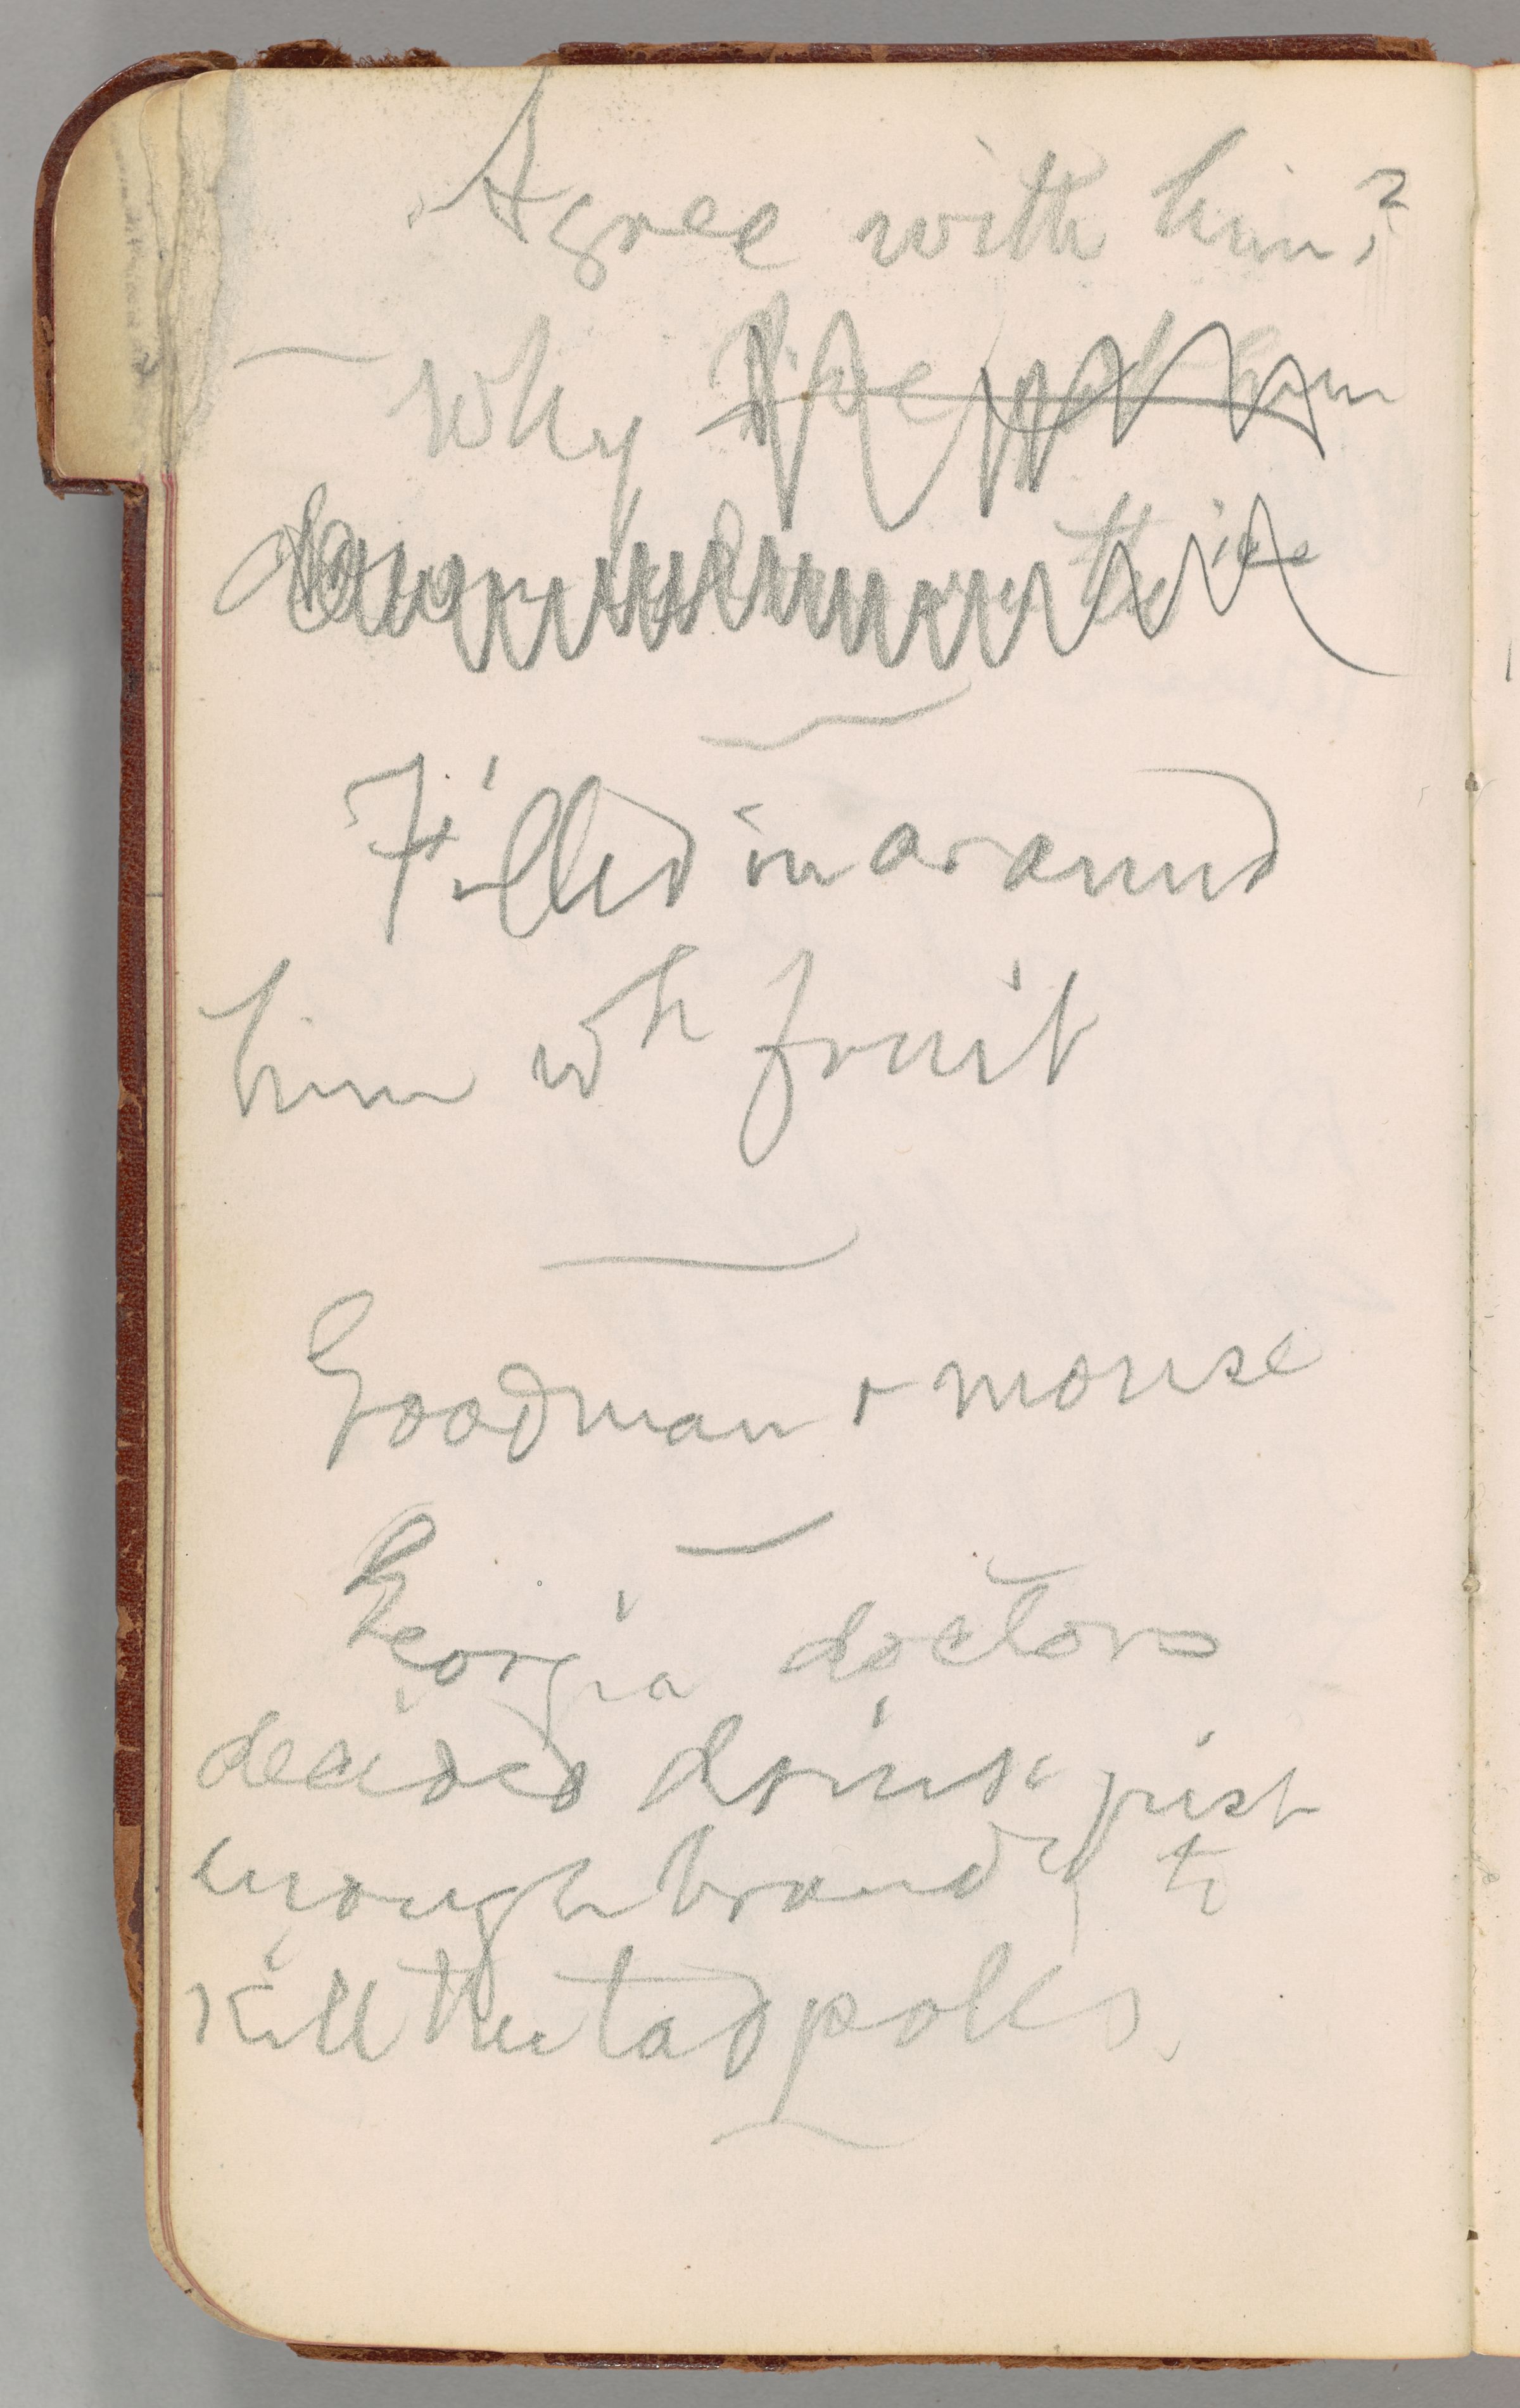 Agree with him?
— Why I've got him
the ice
Filled in around
him wh fruit
Goodman & mouse
Georgia doctors
decided drink just
enough brandy to
kill the tadpoles.